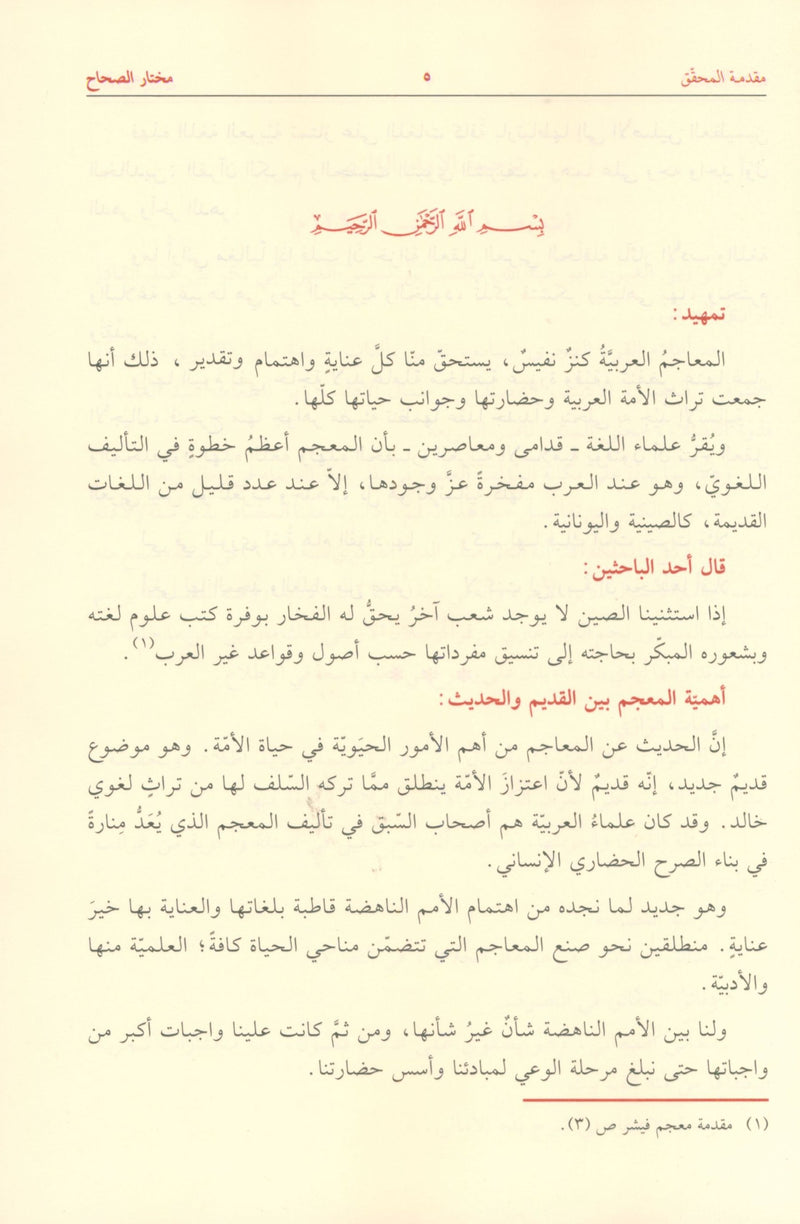 مقدمة المحقّق ٥ مختار الصحاح
بِسْمِ اللَّهِ الرَّحْمَٰنِ الرَّحِيمِ
تمهيد:
المعاجمُ العربيَّةُ كنزٌ نفيسٌ، يستحقّ منّا كلَّ عنايةٍ واهتمام وتقدير ، ذلك أنها
جمعت تراث الأمة العربية وحضارتها وجوانب حياتها كلّها.
ويُقرُّ علماء اللغة ـ قدامى ومعاصرين ـ بأن المعجم أعظمُ خطوةٍ في التأليف
اللغويّ، وهو عند العرب مفخرةً عزَّ وجودها، إلاّ عند عدد قليل من اللغات
القديمة، كالصينية واليونانية.
قال أحد الباحثين:
إذا استثنينا الصين لا يوجد شعب آخرُ يحقُّ له الفخار بوفرة كتب علوم لغته
وبشعوره المبكّر بحاجته إلى تنسيق مفرداتها حسب أصول وقواعد غير العرب(١).
أهميّة المعجم بين القديم والحديث:
إنَّ الحديث عن المعاجم من أهم الأمور الحيَويّة في حياة الأمّة. وهو موضوع
قديمٌ جديد، إنّه قديمٌ لأنّ اعتزازَ الأمّة ينطلق ممَّا تركه السّلف لها من تراثٍ لغوي
خالد. وقد كان علماءُ العربيّة هم أصحاب السّبق في تأليف المعجم الذي يُعَدُّ مِنارةً
في بناء الصرح الحضاري الإنساني.
وهو جديد لما نجده من اهتمام الأمم الناهضة قاطبة بلغاتها والعناية بها خيرَ
عنايةٍ. منطلقين نحو صنع المعاجم التي تتضمّن مناحي الحياة كافةً؛ العلميّة منها
والأدبيّة.
ولنا بين الأمم الناهضة شأنٌ غيرُ شأنها، ومن ثمَّ كانت علينا واجبات أكبر من
واجباتها حتى نبلغ مرحلة الوعي لمبادئنا وأسس حضارتنا.
(١) مقدمة معجم فيشر ص (٣).